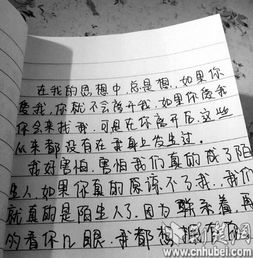 在我的思想中，总是想，如果你
爱我，你就不会离开我，如果你爱我
你会来找我，可是在你离开后，这些
从来都没有在我身上发生过。
我好害怕，害怕我们真的成了陌
生人，如果你真的原谅不了我，我们
就真的是陌生人了，因为
的看你几眼，我都想
cnhubei.com
www.cnhubei.com